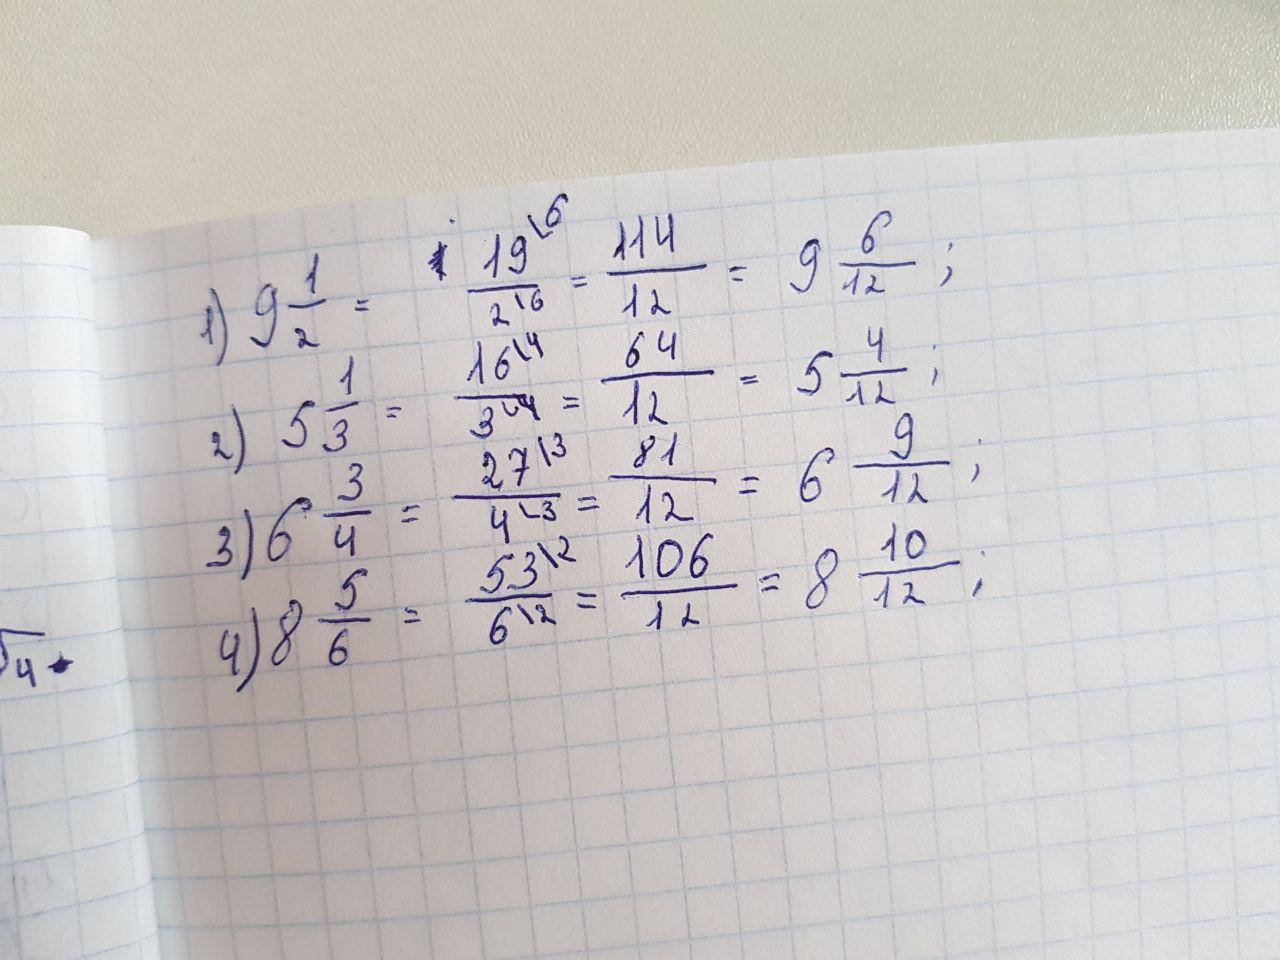 1) 9 1/2 = 19\6/2\6 = 114/12 = 9 6/12 ;
2) 5 1/3 = 16\4/3\4 = 64/12 = 5 4/12 ;
3) 6 3/4 = 27\3/4\3 = 81/12 = 6 9/12 ;
4) 8 5/6 = 53\2/6\2 = 106/12 = 8 10/12 ;
4